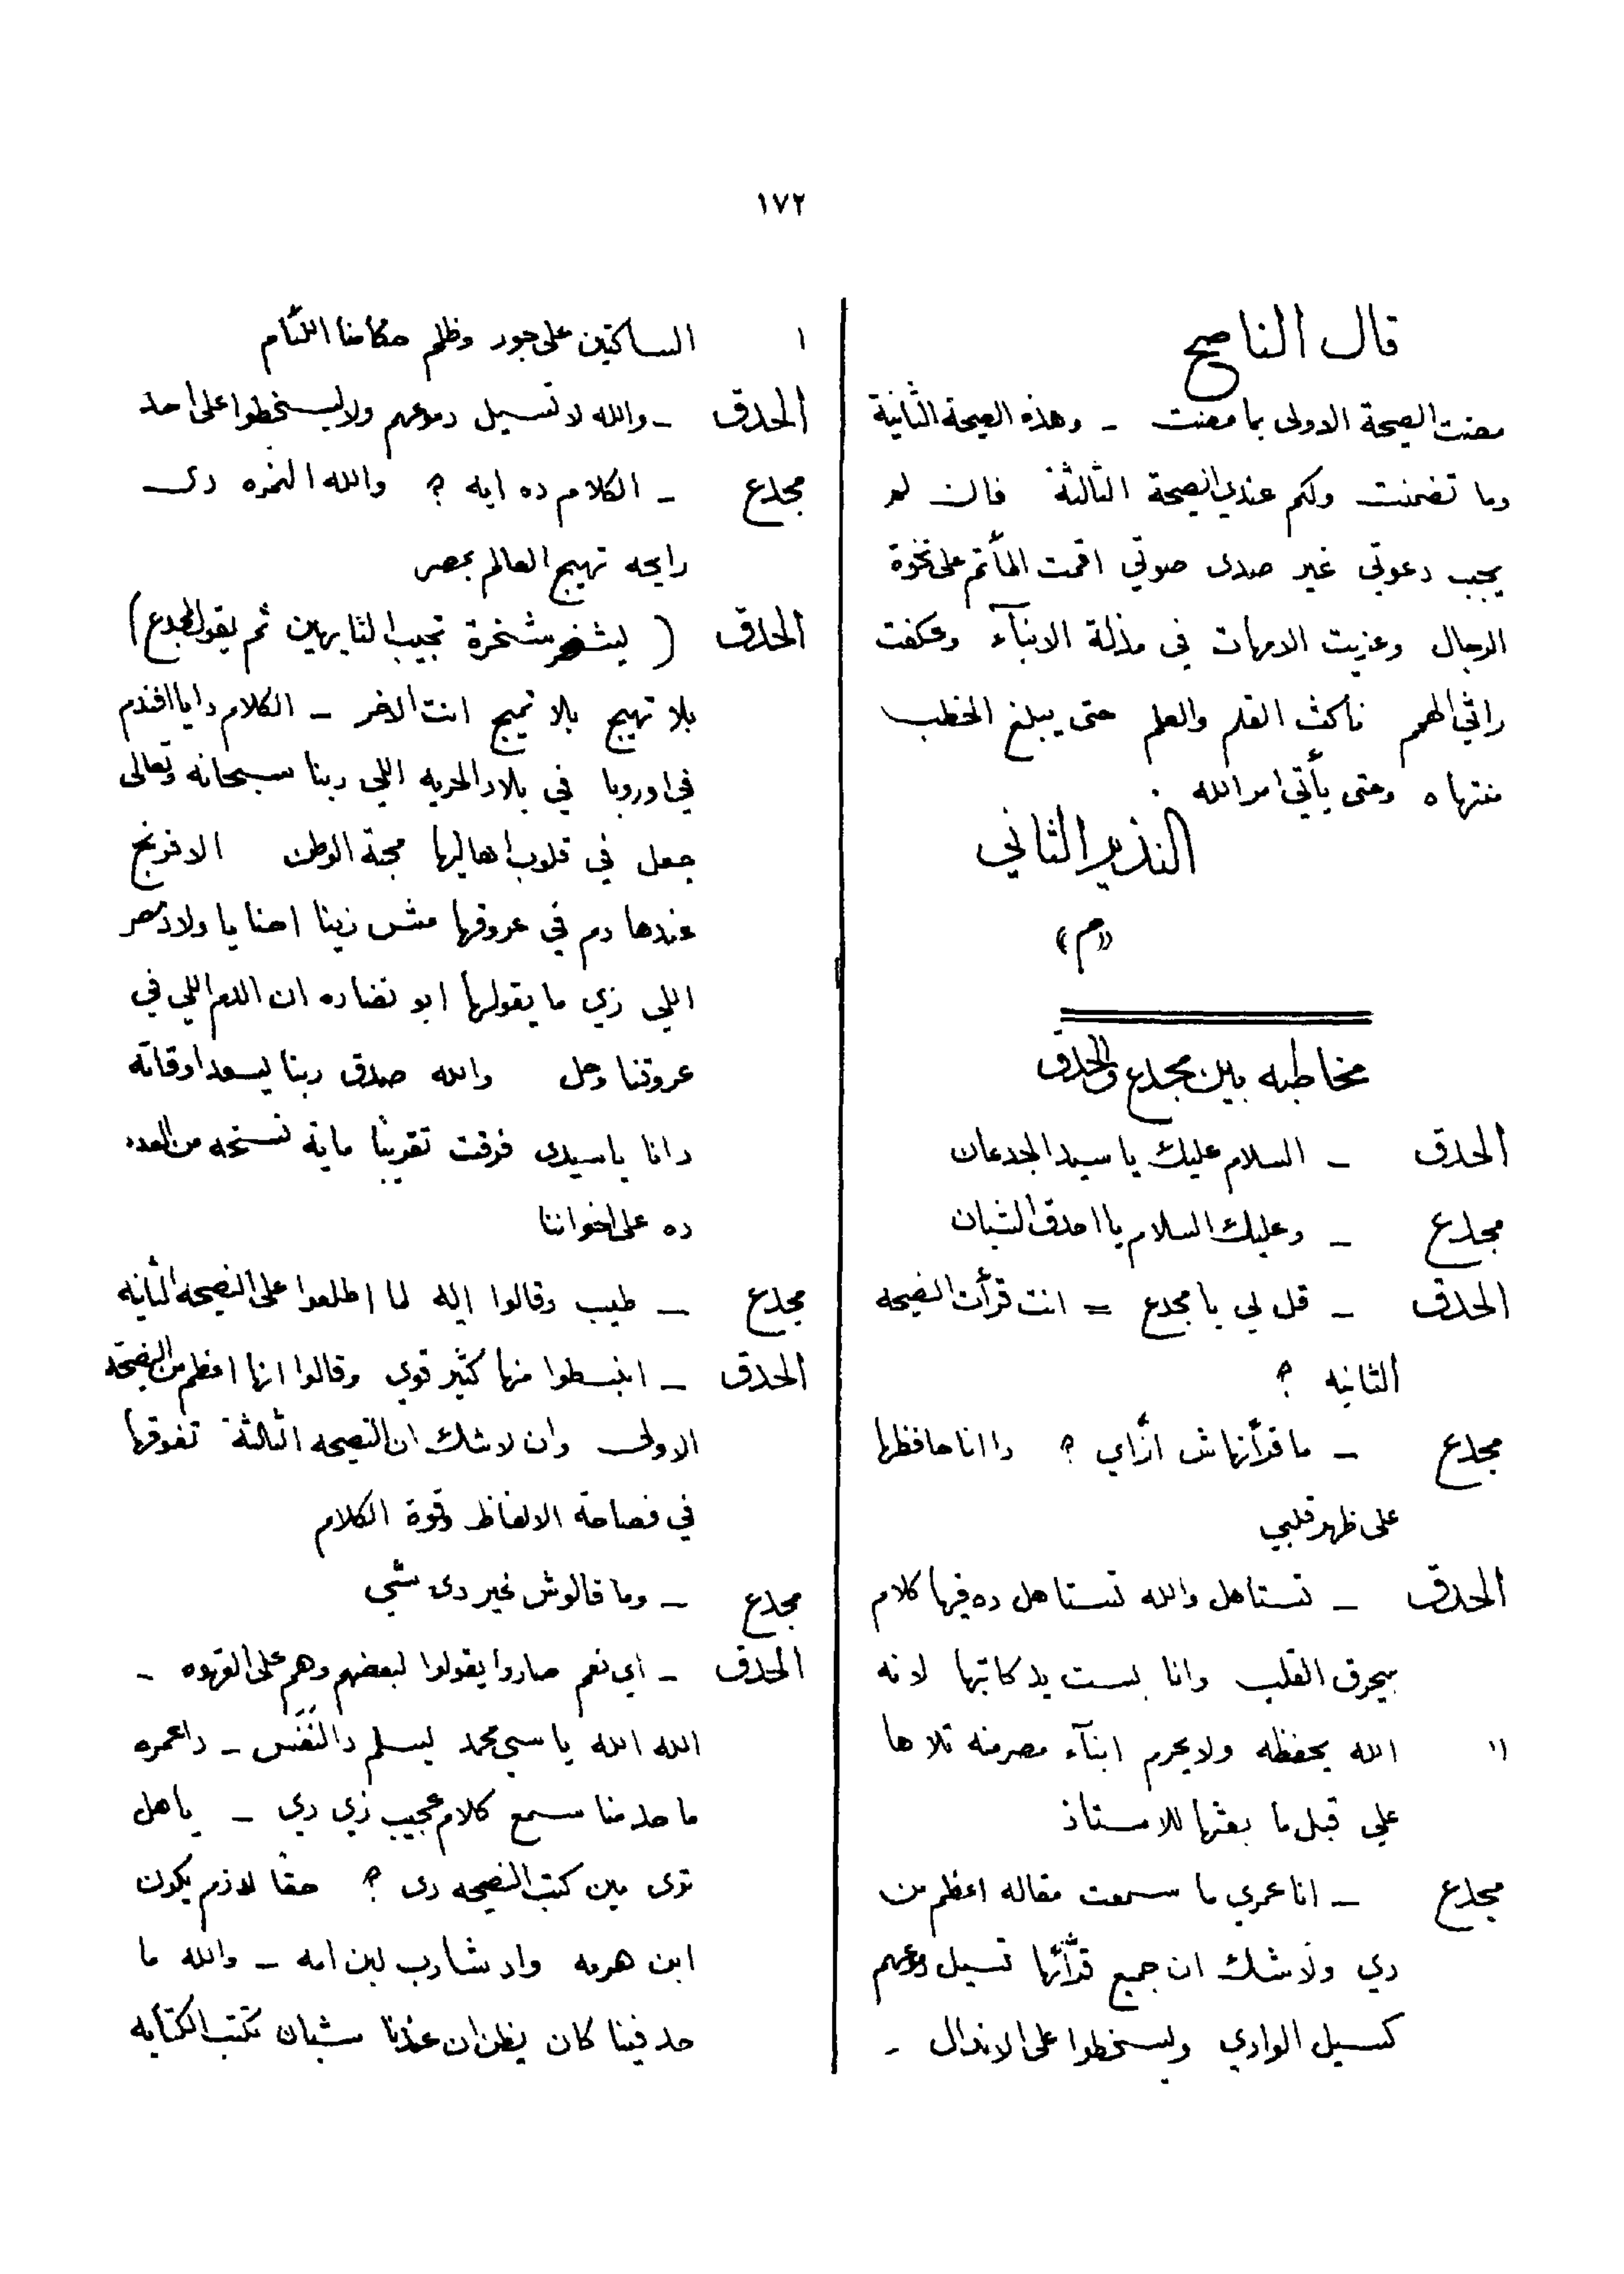 ١٧٢
قال الناصح
مضت الصيحة الاولى بما مضت - وهذه الصيحة الثانية
وما تضمنت ولكم عندي الصيحة الثالثة فان لم
يجب دعوتي غير صدى صوتي اقمت المأتم على نخوة
الرجال وعزيت الامهات في مذلة الابنآء وعكفت
راثي الهمم ناكث القلم والعلم حتى يبلغ الخطب
منتهاه وحتى يأتي امر الله .
النذير الثاني
«م»
مخاطبه بين مجدع والحدق
الحدق - السلام عليك يا سيد الجدعان
مجدع - وعليك السلام يا احدق الشبان
الحدق - قل لي يا مجدع = انت قرأت النصيحه
الثانيه ؟
مجدع - ما قرأنهاش ازاي ؟ دا انا حافظها
على ظهر قلبي
الحدق - تستاهل والله تستاهل ده فيها كلام
بيحرق القلب وانا بست يد كاتبها لانه
" الله يحفظه ولا يحرم ابنآء مصر منه تلاها
علي قبل ما بعثها للاستاذ
مجدع - انا عمري ما سمعت مقاله اعظم من
دي ولا شك ان جميع قرآئها تسيل دموعهم
كسيل الوادي ويسخطوا على الاندال -
ا الساكتين على جور وظلم حكامنا اللئام
الحدق - والله لا تسيل دموعهم ولا يسخطوا على احد
مجدع - الكلام ده ايه ؟ والله النمره دى
رايحه تهيج العالم بمصر
الحدق ( يشخر شخرة تجيب لتايهين ثم يقول لمجدع )
بلا تهيج بلا تميج انت الاخر - الكلام دا يا افندم
في اوروبا في بلاد الحريه اللي ربنا سبحانه وتعالى
جعل في قلوب اهاليها محبة الوطن الافرنج
عندها دم في عروقها مش زينا احنا يا ولاد مصر
اللي زي ما يقولها ابو نضاره ان الدم اللي في
عروقنا وحل والله صدق ربنا يسعد اوقاته
دانا يا سيدى فرقت تقريبًا ماية نسخه من العدد
ده على اخواننا
مجدع - طيب وقالوا ايه لما اطلعوا على النصيحه الثانيه
الحدق - انبسطوا منها كثير قوي وقالوا انها اعظم من النصيحة
الاولى وان لا شك ان النصيحه الثالثة تفوقها
في فصاحة الالفاظ وقوة الكلام
مجدع - وما قالوش غير دى شي
الحدق - اي نعم صاروا يقولوا لبعضهم وهم على القهوه -
الله الله يا سي محمد يسلم دالنَفَس - داعمره
ما حد منا سمع كلام عجيب زي دي - ياهل
ترى مين كتب النصيحه دى ؟ حقًا لازم يكون
ابن هرمه واد شارب لبن امه - والله ما
حد فينا كان يظن ان عندنا شبان تكتب الكتابه